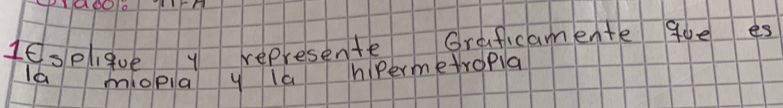 Grado: 11-A
1 Esplique y represente Graficamente que es
la miopia y la hipermetropia